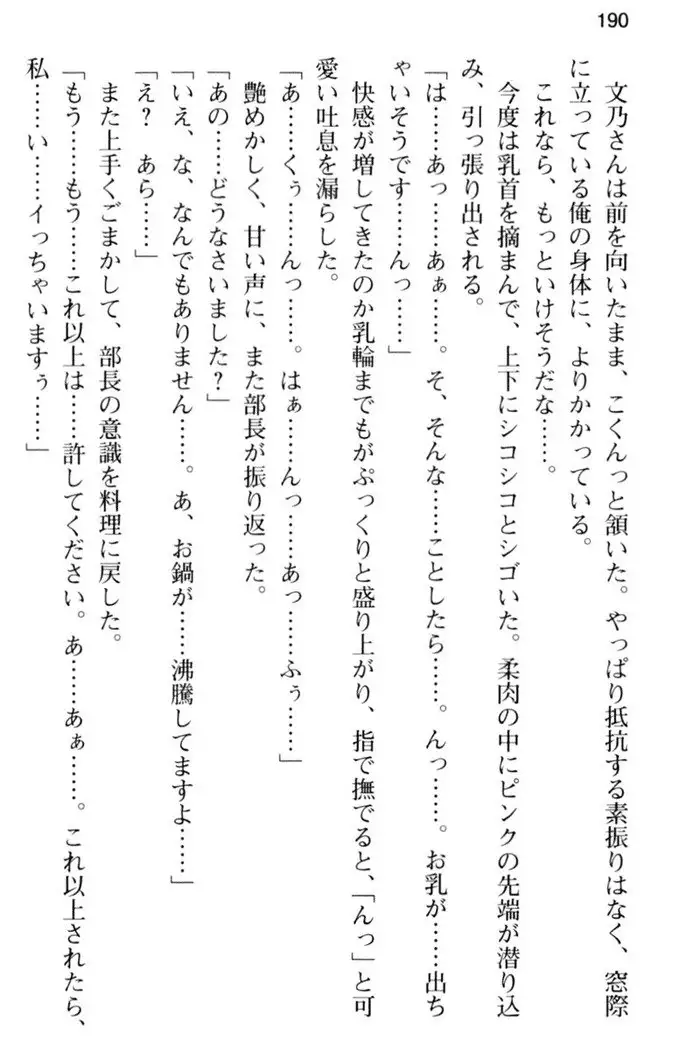 190
文乃さんは前を向いたまま、こくんっと頷いた。やっぱり抵抗する素振りはなく、窓際
に立っている俺の身体に、よりかかっている。
これなら、もっといけそうだな……。
今度は乳首を摘まんで、上下にシコシコとシゴいた。柔肉の中にピンクの先端が潜り込
み、引っ張り出される。
「は……あっ……あぁ……。そ、そんな……ことしたら……。んっ……。お乳が……出ち
ゃいそうです……んっ……」
快感が増してきたのか乳輪までもがぷっくりと盛り上がり、指で撫でると、「んっ」と可
愛い吐息を漏らした。
「あ……くぅ……んっ……。はぁ……んっ……あっ……ふぅ……」
艶めかしく、甘い声に、また部長が振り返った。
「あの……どうなさいました?」
「いえ、な、なんでもありません……。あ、お鍋が……沸騰してますよ……」
「え? あら……」
また上手くごまかして、部長の意識を料理に戻した。
「もう……もう……これ以上は……許してください。あ……あぁ……。これ以上されたら、
私……い……イっちゃいますぅ……」